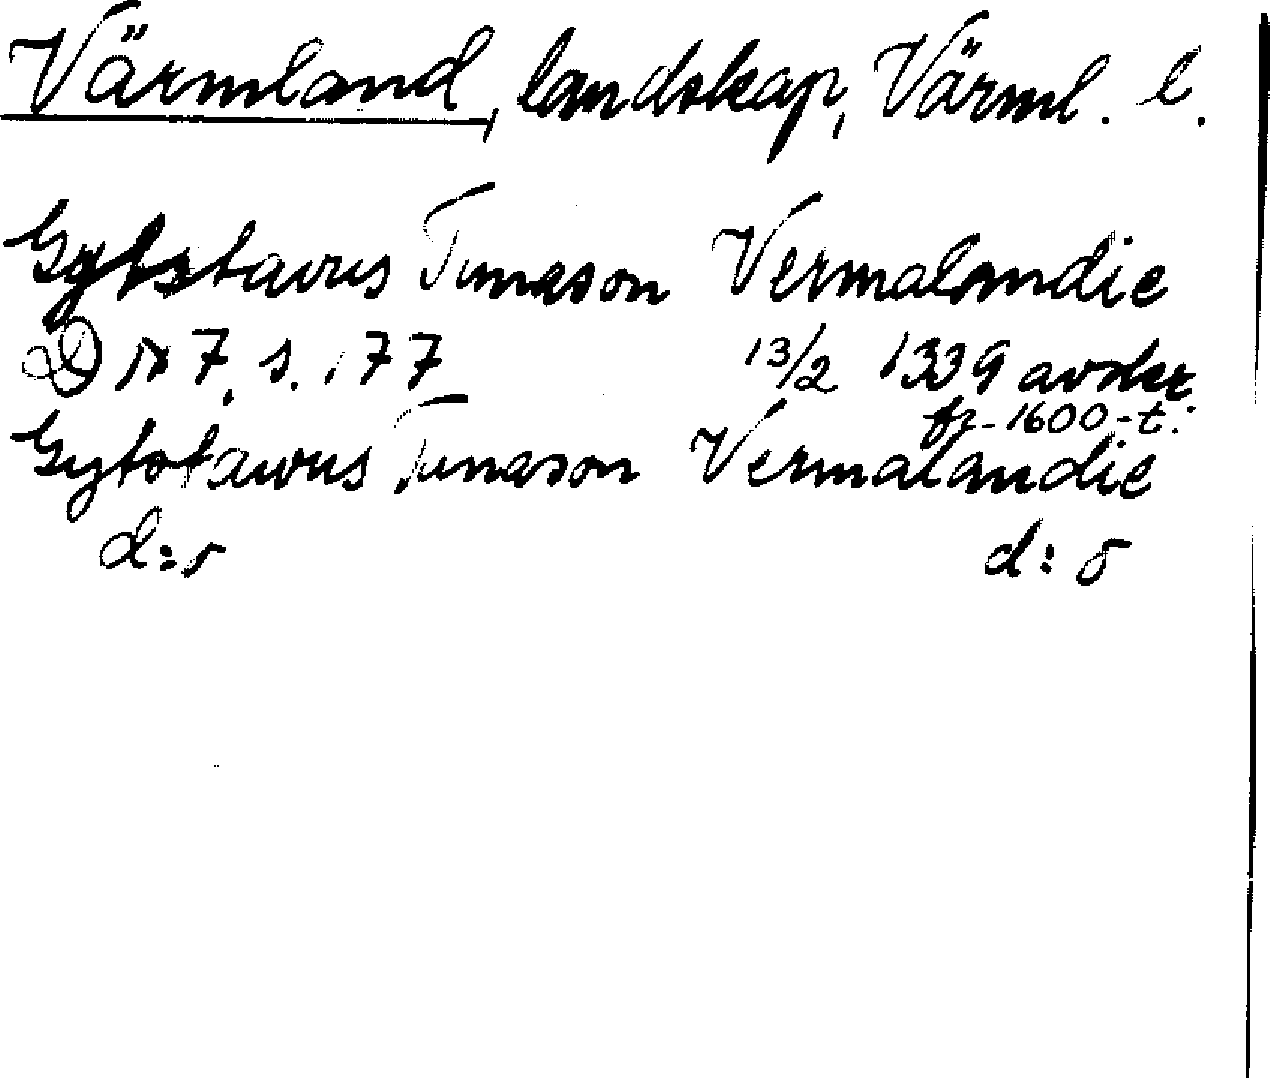 Värmland, landskap, Värml. l.
Gytstavus Tunason Vermalandie
DN 7, s. 177 13/2 1339 avskr
fr. 1600-t.
Gytstavus Tunason Vermalandie
d:o d:o